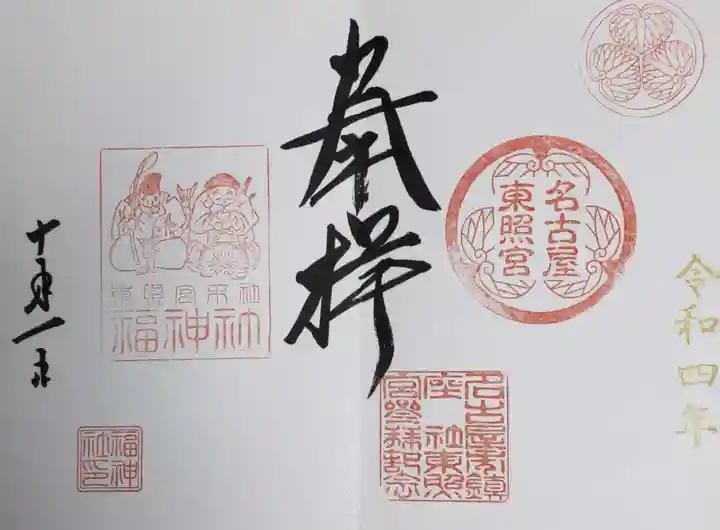 令和四年
名古屋
東照宮
名古屋東鎮
座 社東照
宮参拝記念
奉拝
東照宮末社
福神社
福神
社印
十月一日